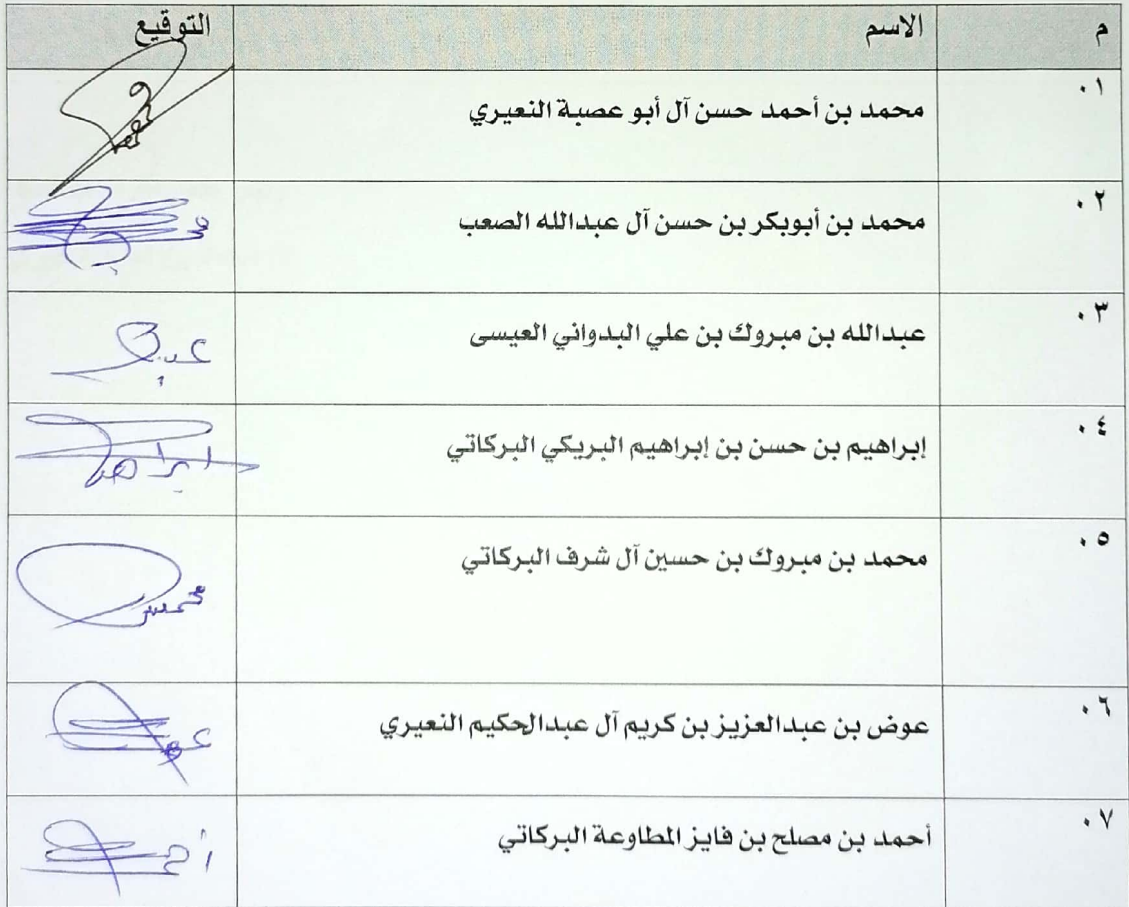 م الاسم التوقيع
٠١ محمد بن أحمد حسن آل أبو عصبة النعيري
٠٢ محمد بن أبوبكر بن حسن آل عبدالله الصعب
٠٣ عبدالله بن مبروك بن علي البدواني العيسى
٠٤ إبراهيم بن حسن بن إبراهيم البريكي البركاتي
٠٥ محمد بن مبروك بن حسين آل شرف البركاتي
٠٦ عوض بن عبدالعزيز بن كريم آل عبدالحكيم النعيري
٠٧ أحمد بن مصلح بن فايز المطاوعة البركاتي